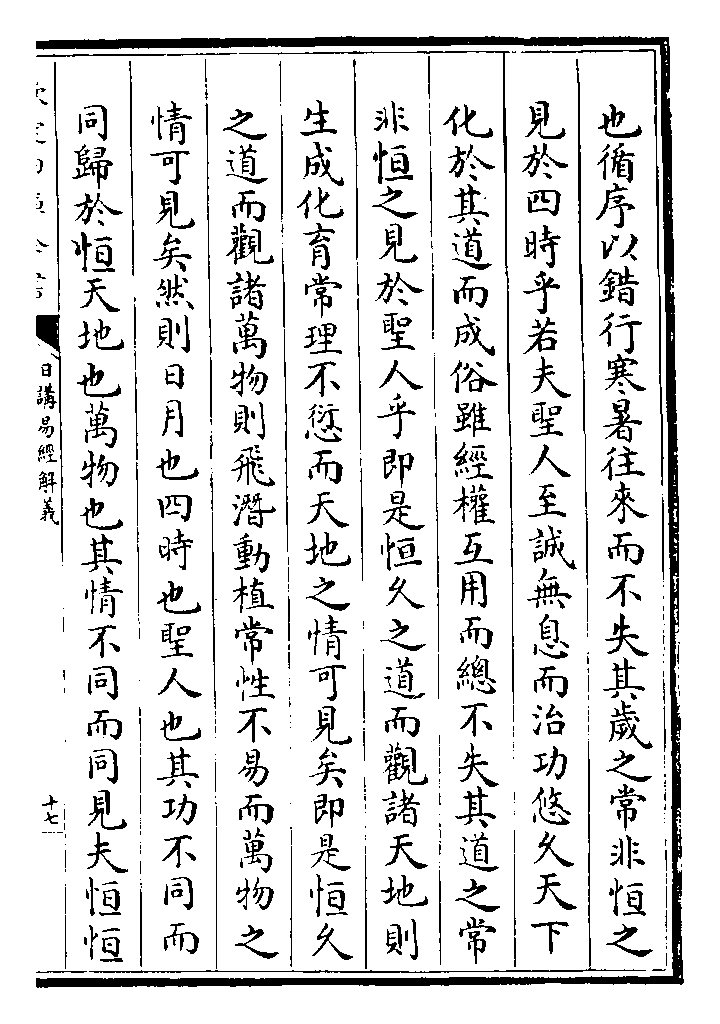 也循序以錯行寒暑往來而不失其歲之常非恒之
見於四時乎若夫聖人至誠無息而治功悠久天下
化於其道而成俗雖經權互用而總不失其道之常
非恒之見於聖人乎即是恒久之道而觀諸天地則
生成化育常理不愆而天地之情可見矣即是恒久
之道而觀諸萬物則飛潛動植常性不易而萬物之
情可見矣然則日月也四時也聖人也其功不同而
同歸於恒天地也萬物也其情不同而同見夫恒恒
日講易經解義
十七